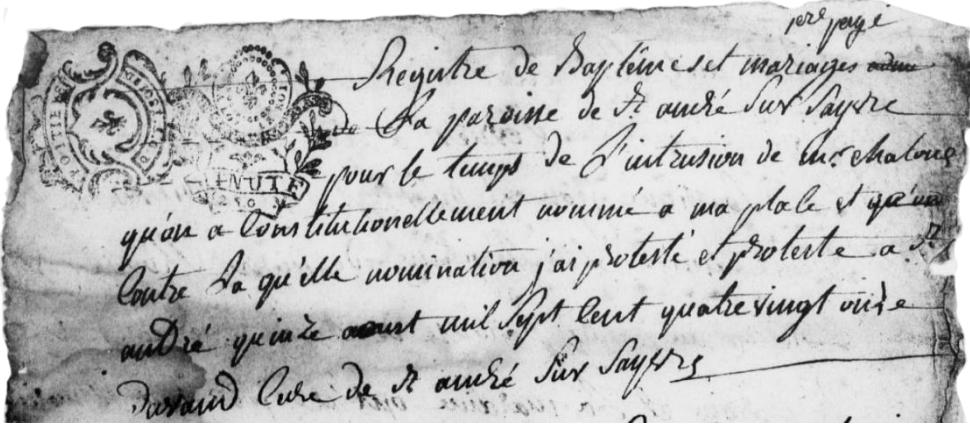 pre page
Registre de Baptêmes et mariages
de La paroisse de St andré Sur Sayvre
pour le temps de l'intrusion de mr chatone
qu'on a Constitutionellement nommé a ma place et
Contre La qu'elle nomination j'ai protesté et proteste a St
andré quinze aoust mil Sept Cent quatre vingt onze
Durand Curé de St andré Sur Sayvre
POITIERS
MINUTE